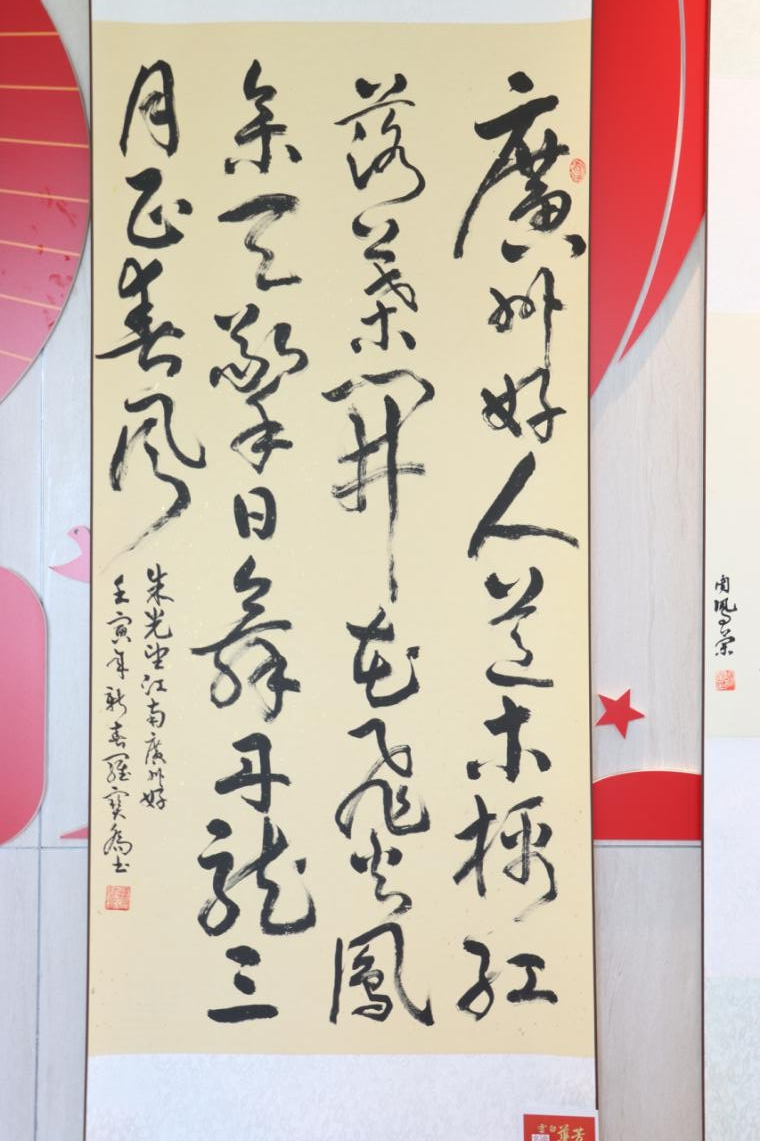 廣州好人道木棉紅
落葉開花飛火鳳
參天擎日舞丹龍三
月正春風
朱光望江南廣州好
壬寅年新春羅寶喬书